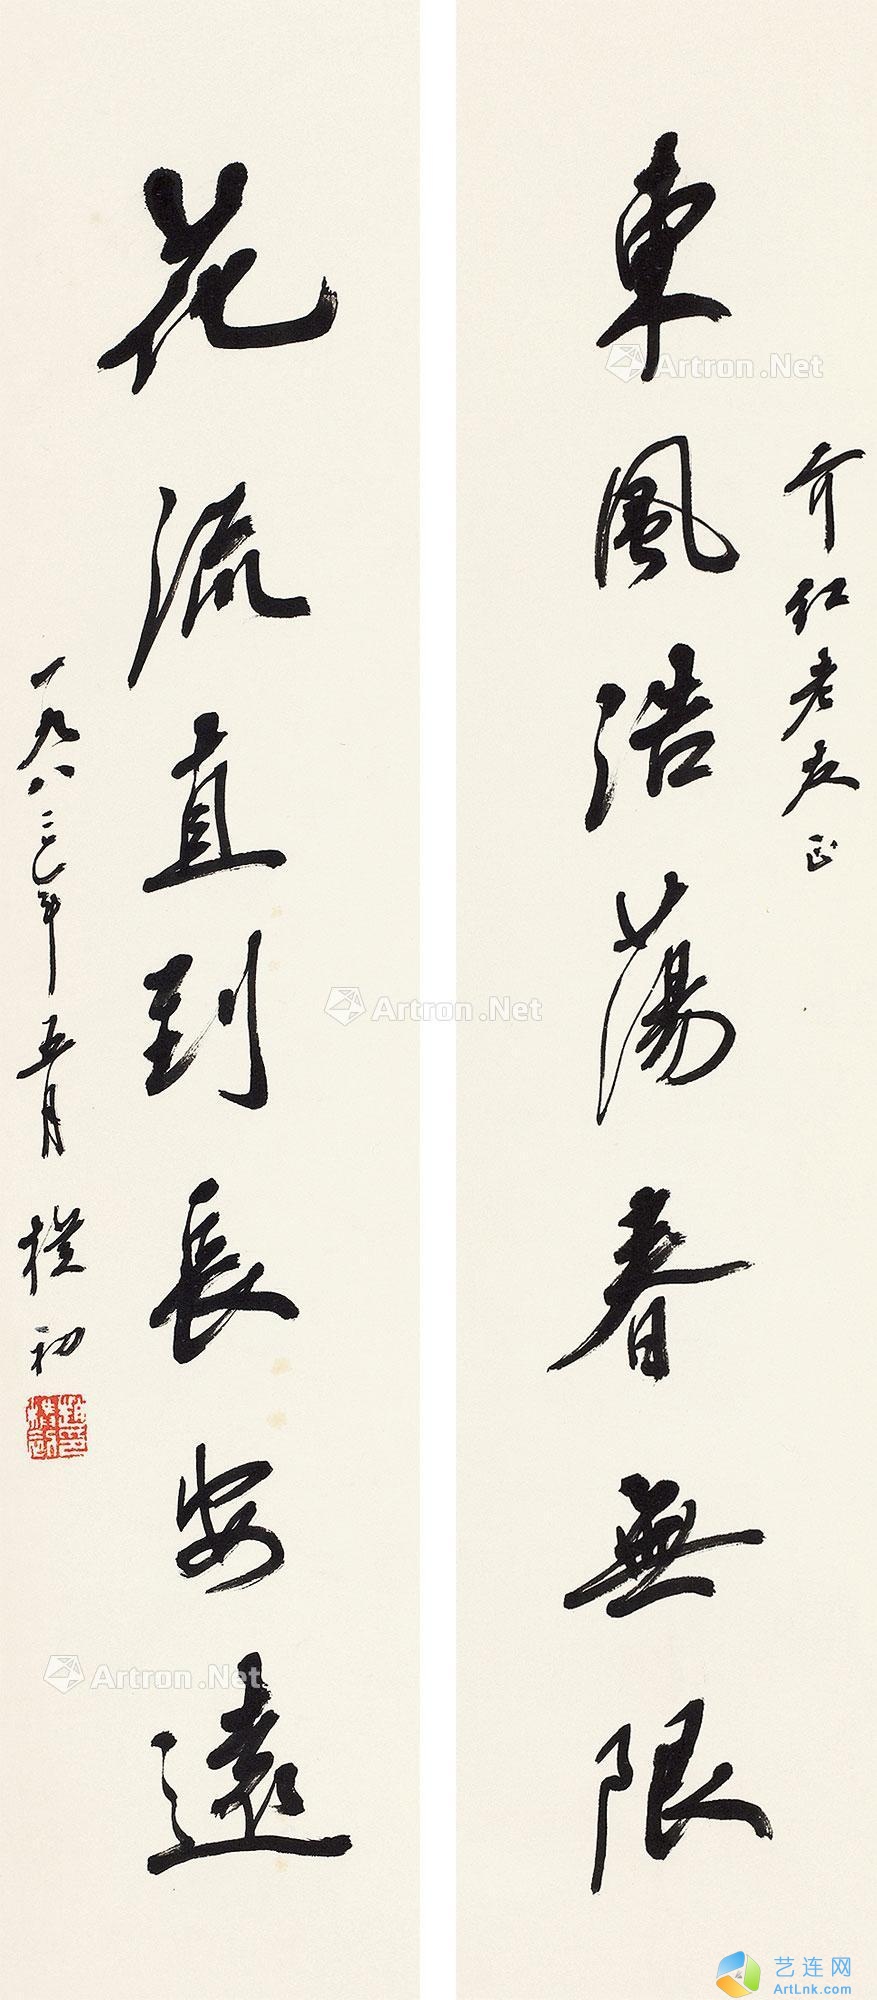 介红老友正
東風浩蕩春無限
花流直到長安遠
一九八三年五月
樸初
趙樸初印
Artron.Net
Artron.Net
Artron.Net
艺连网
ArtLnk.com